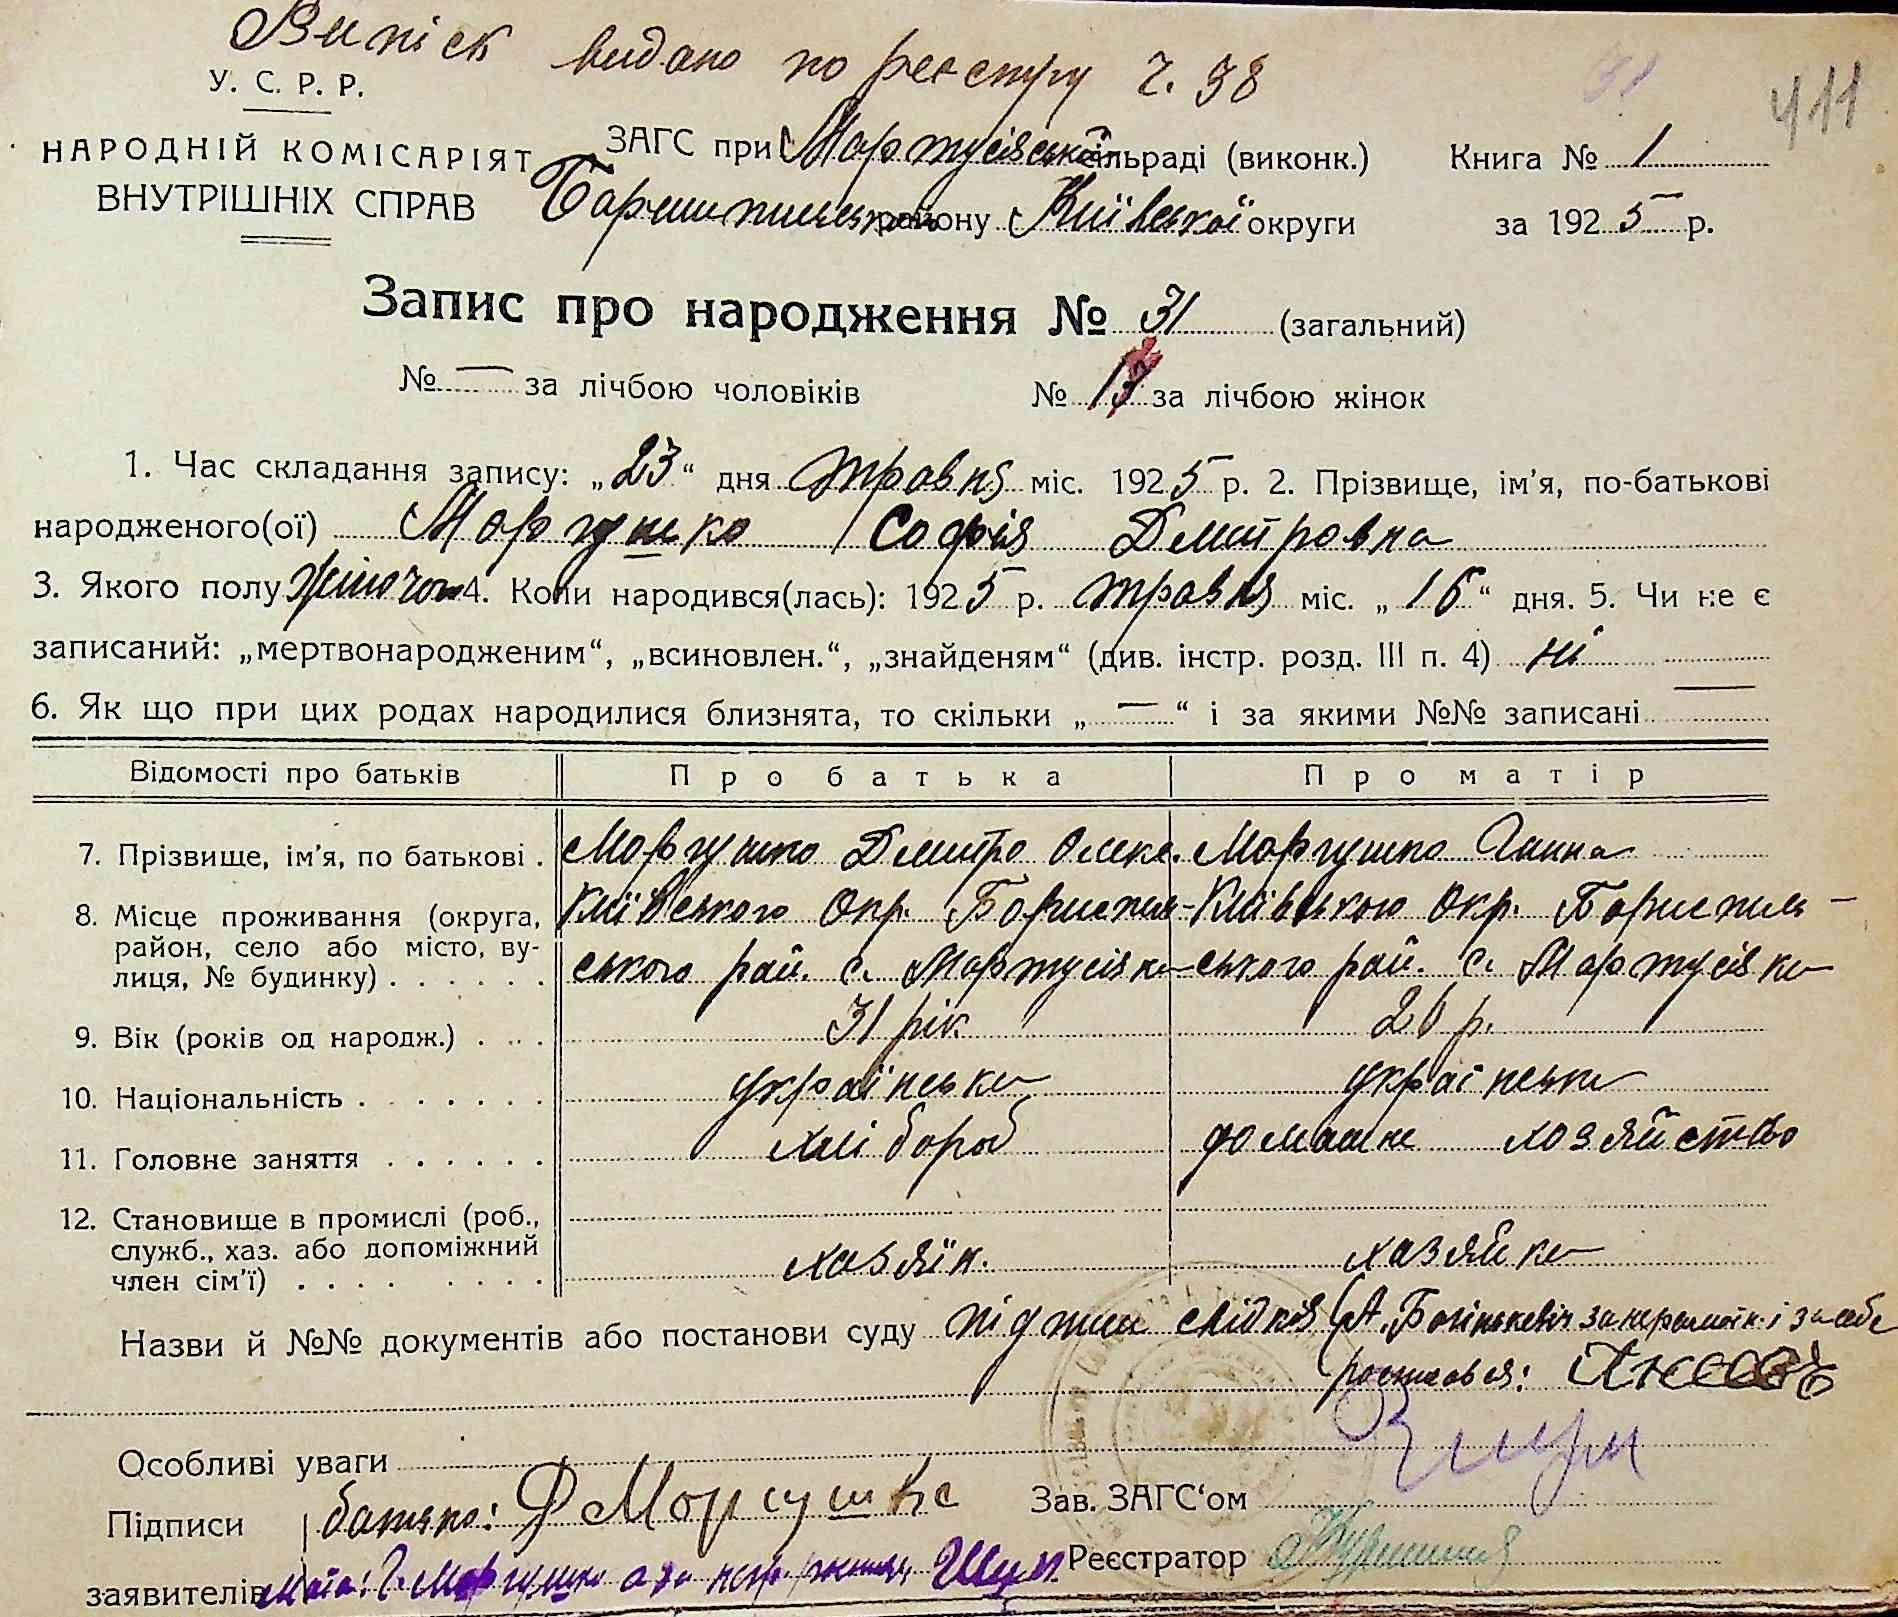 Випіск видано по реєстру Ч. 38
411
У. С. Р. Р.
НАРОДНІЙ КОМІСАРІЯТ
ВНУТРІШНІХ СПРАВ
ЗАГС при Мартусівській сільраді (виконк.)
Бориспільськ району Київської округи
Книга № 1
за 1925 р.
Запис про народження № 31 (загальний)
№ — за лічбою чоловіків № 13 за лічбою жінок
1. Час складання запису: „23“ дня травня міс. 1925 р. 2. Прізвище, ім’я, по-батькові
народженого(ої) Моргушко Софія Дмитровна
3. Якого полу жіночого 4. Коли народився(лась): 1925 р. травня міс. „16“ дня. 5. Чи не є
записаний: „мертвонародженим“, „всиновлен.“, „знайденям“ (див. інстр. розд. III п. 4) ні
6. Як що при цих родах народилися близнята, то скільки „ — “ і за якими №№ записані —
Відомості про батьків Про батька Про матір
7. Прізвище, ім’я, по батькові . Моргушко Дмитро Олекс. Моргушко Ганна
8. Місце проживання (округа, район, село або місто, ву-лиця, № будинку) . . . . . .
Київського Окр. Бориспіль-
ського рай. с. Мартусівка
Київького Окр. Бориспіль-
ського рай. с. Мартусівка
9. Вік (років од народж.) . . . 31 рік 26 р.
10. Національність . . . . . . . українська українська
11. Головне заняття . . . . . . хлібороб домашнє хозяйство
12. Становище в промислі (роб., служб., хаз. або допоміжний член сім’ї) . . . . . . . . хазяїн. хазяйка
Назви й №№ документів або постанови суду підписи свідків
росписався:
Особливі уваги
Підписи
заявителів
батько: Д Моргушко
Мати: Г. Моргушко а за негр. росписався Шум
Зав. ЗАГС‘ом
Реєстратор